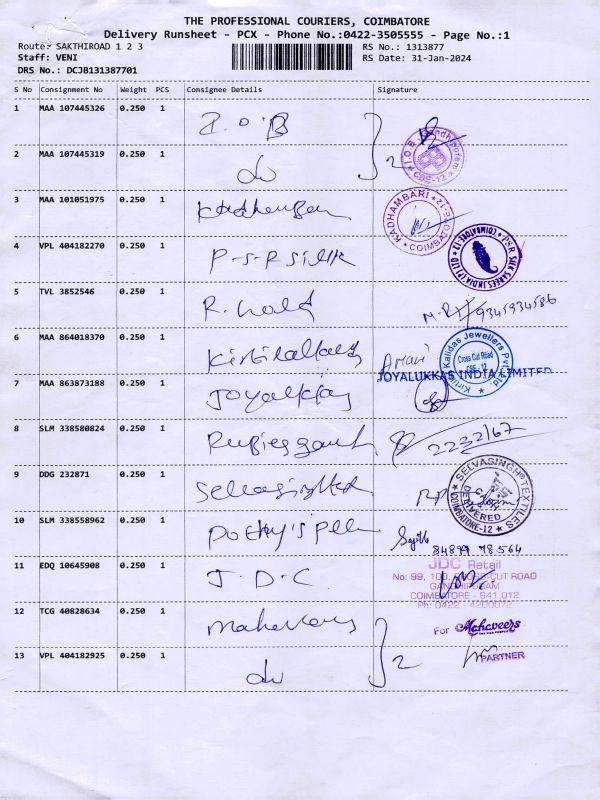 THE PROFESSIONAL COURIERS, COIMBATORE
Delivery Runsheet - PCX - Phone No.:0422-3505555 - Page No.:1
Route: SAKTHIROAD 1 2 3
RS No.: 1313877
Staff: VENI
RS Date: 31-Jan-2024
DRS No.: DCJB131387701
S No Consignment No Weight PCS Consignee Details Signature
1 MAA 107445326 0.250 1
2 MAA 107445319 0.250 1 do 2
3 MAA 101051975 0.250 1 KADHAMBARI COIMBATORE-12
4 VPL 404182270 0.250 1 P-S-R Silk PSR SILK SAREES INDIA (P) LTD COIMBATORE-12
5 TVL 3852546 0.250 1 9345934586
6 MAA 864018370 0.250 1 Kirtilal Kalidas Jewellers Pvt Ltd Cross Cut Road CBE - 12
7 MAA 863873188 0.250 1 JOYALUKKAS INDIA LIMITED
8 SLM 338580824 0.250 1 2232167
9 DDG 232871 0.250 1 SELVASINGH TEXTILES CASH DELIVERED COIMBATORE-12
10 SLM 338558962 0.250 1 84899 78564
11 EDQ 10645908 0.250 1 J.D.C. JDC Retail
No: 99, 100, CROSS-CUT ROAD
GANDHIPURAM
COIMBATORE - 641 012
Ph: 0422 -
12 TCG 40828634 0.250 1 For Mahaveers
13 VPL 404182925 0.250 1 do 2 PARTNER